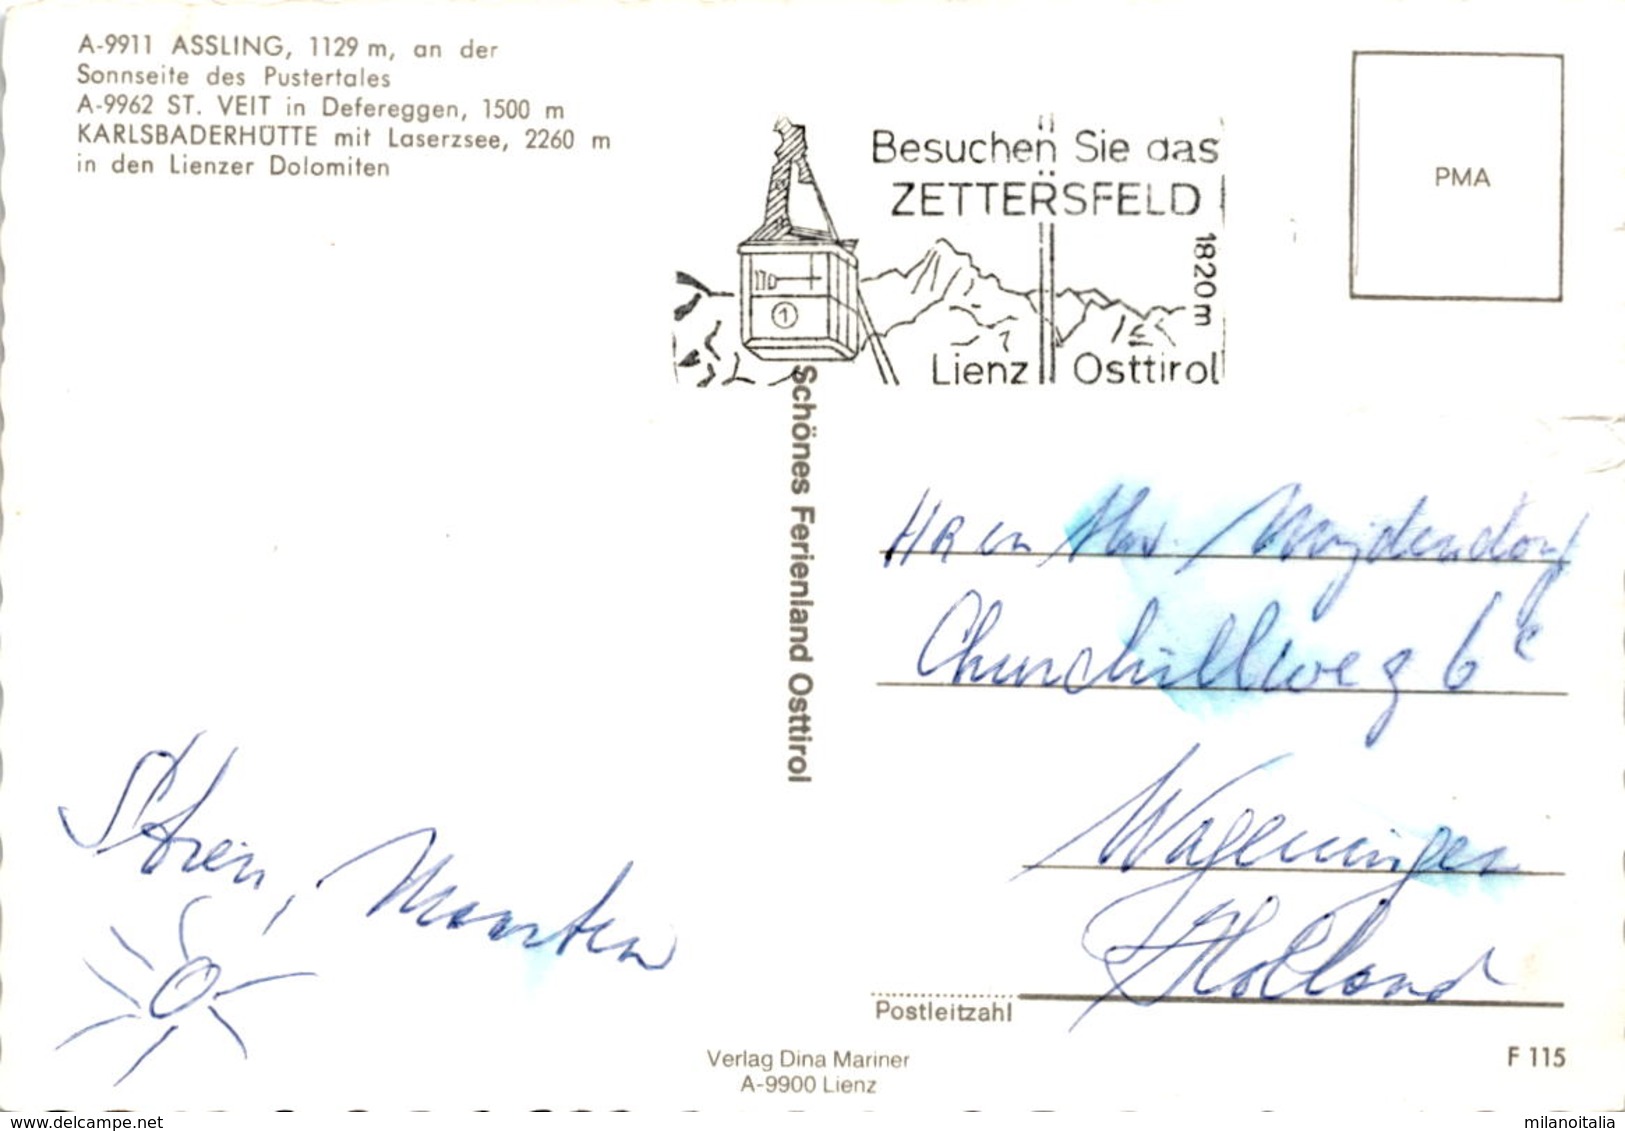 A-9911 ASSLING, 1129 m, an der
Sonnseite des Pustertales
A-9962 ST. VEIT in Defereggen, 1500 m
KARLSBADERHÜTTE mit Laserzsee, 2260 m
in den Lienzer Dolomiten
Besuchen Sie das
ZETTERSFELD
1820 m
Lienz Osttirol
1
PMA
Schönes Ferienland Osttirol
Churchillweg 6c
Wageningen
Holland
Maarten
Postleitzahl
Verlag Dina Mariner
A-9900 Lienz
F 115
www.delcampe.net
milanoitalia